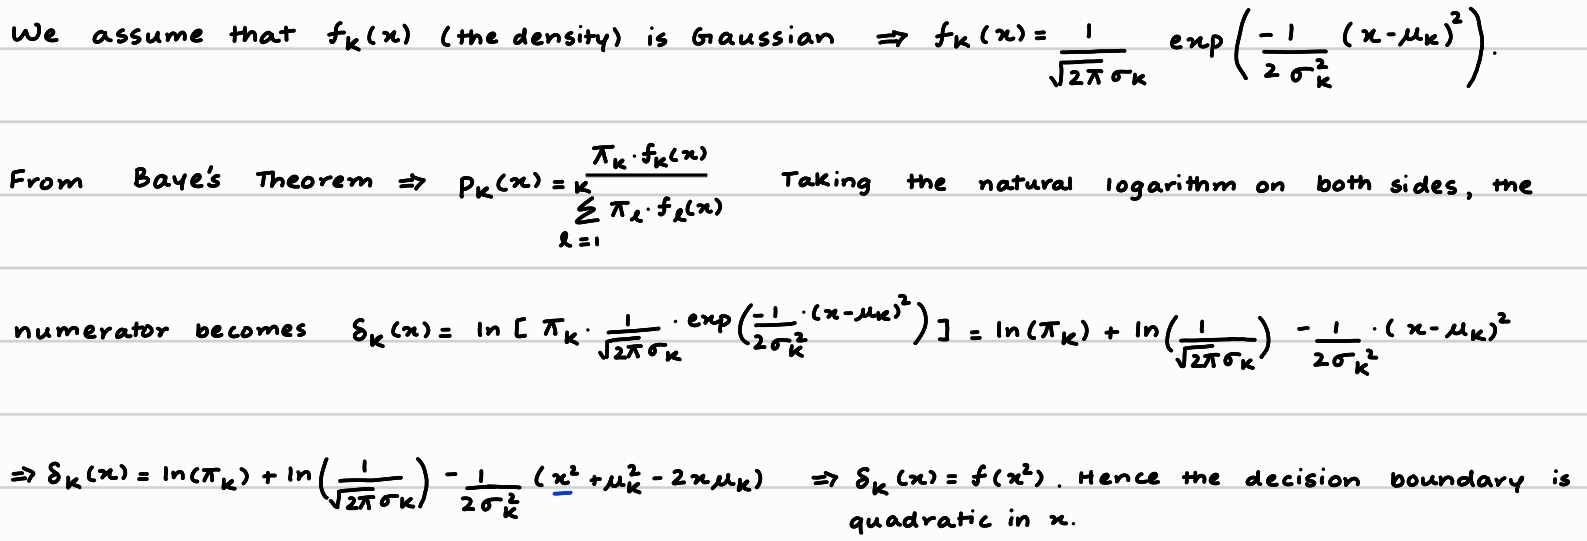 We assume that fₖ(x) (the density) is Gaussian ⇒ fₖ(x) = 1/(√2π σₖ) exp(-1/(2σₖ²) (x-μₖ)²).
From Baye's Theorem ⇒ pₖ(x) = πₖ·fₖ(x) / Σ_{l=1}^{K} πₗ·fₗ(x) Taking the natural logarithm on both sides, the
numerator becomes δₖ(x) = ln[πₖ · 1/(√2π σₖ) · exp(-1/(2σₖ²) · (x-μₖ)²)] = ln(πₖ) + ln(1/(√2π σₖ)) - 1/(2σₖ²) · (x-μₖ)²
⇒ δₖ(x) = ln(πₖ) + ln(1/(√2π σₖ)) - 1/(2σₖ²) (x² + μₖ² - 2xμₖ) ⇒ δₖ(x) = f(x²). Hence the decision boundary is
quadratic in x.